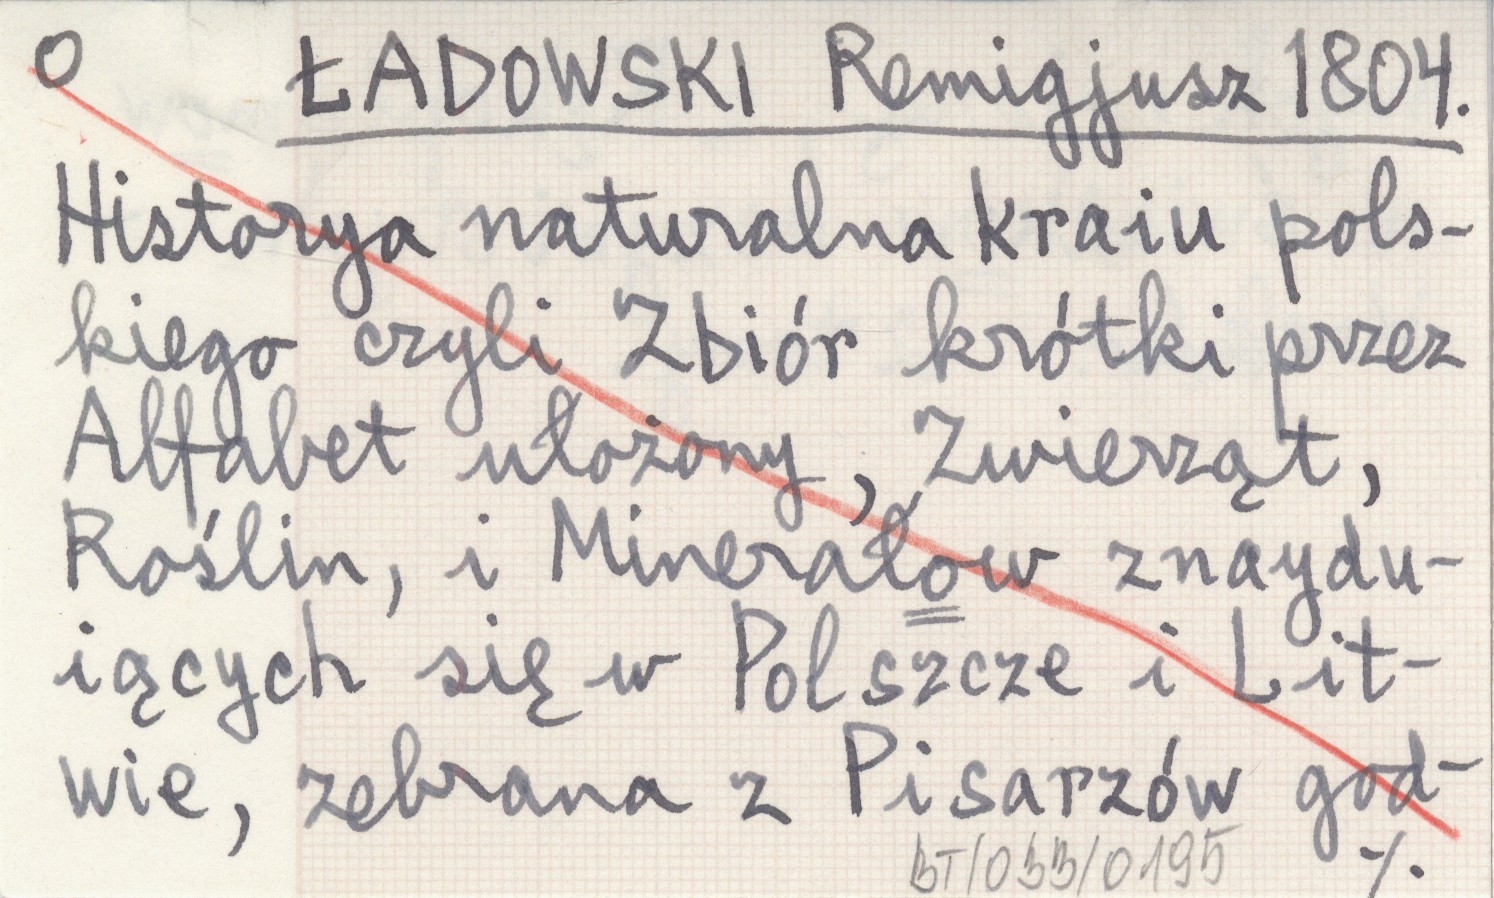 O ŁADOWSKI Remigjusz 1804.
Historya naturalna kraiu pols-
kiego czyli Zbiór krótki przez
Alfabet ułożony, Zwierząt,
Roślin, i Minerałow znaydu-
iących się w Polszcze i Lit-
wie, zebrana z Pisarzów god-
BT/033/0195 ⁒